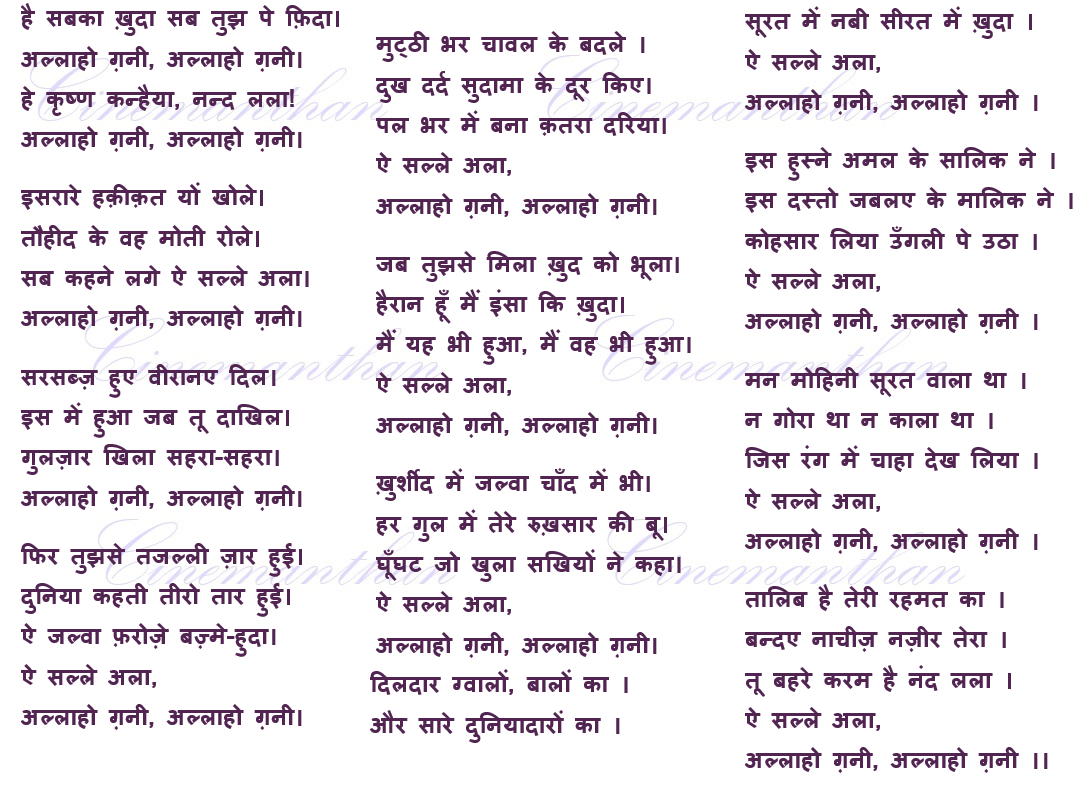 है सबका ख़ुदा सब तुझ पे फ़िदा।
अल्लाहो ग़नी, अल्लाहो ग़नी।
हे कृष्ण कन्हैया, नन्द लला!
अल्लाहो ग़नी, अल्लाहो ग़नी।
इसरारे हक़ीक़त यों खोले।
तौहीद के वह मोती रोले।
सब कहने लगे ऐ सल्ले अला।
अल्लाहो ग़नी, अल्लाहो ग़नी।
सरसब्ज़ हुए वीरानए दिल।
इस में हुआ जब तू दाखिल।
गुलज़ार खिला सहरा-सहरा।
अल्लाहो ग़नी, अल्लाहो ग़नी।
फिर तुझसे तजल्ली ज़ार हुई।
दुनिया कहती तीरो तार हुई।
ऐ जल्वा फ़रोज़े बज़्मे-हुदा।
ऐ सल्ले अला,
अल्लाहो ग़नी, अल्लाहो ग़नी।
मुट्ठी भर चावल के बदले ।
दुख दर्द सुदामा के दूर किए।
पल भर में बना क़तरा दरिया।
ऐ सल्ले अला,
अल्लाहो ग़नी, अल्लाहो ग़नी।
जब तुझसे मिला ख़ुद को भूला।
हैरान हूँ मैं इंसा कि ख़ुदा।
मैं यह भी हुआ, मैं वह भी हुआ।
ऐ सल्ले अला,
अल्लाहो ग़नी, अल्लाहो ग़नी।
ख़ुर्शीद में जल्वा चाँद में भी।
हर गुल में तेरे रुख़सार की बू।
घूँघट जो खुला सखियों ने कहा।
ऐ सल्ले अला,
अल्लाहो ग़नी, अल्लाहो ग़नी।
दिलदार ग्वालों, बालों का ।
और सारे दुनियादारों का ।
सूरत में नबी सीरत में ख़ुदा ।
ऐ सल्ले अला,
अल्लाहो ग़नी, अल्लाहो ग़नी ।
इस हुस्ने अमल के सालिक ने ।
इस दस्तो जबलए के मालिक ने ।
कोहसार लिया उँगली पे उठा ।
ऐ सल्ले अला,
अल्लाहो ग़नी, अल्लाहो ग़नी ।
मन मोहिनी सूरत वाला था ।
न गोरा था न काला था ।
जिस रंग में चाहा देख लिया ।
ऐ सल्ले अला,
अल्लाहो ग़नी, अल्लाहो ग़नी ।
तालिब है तेरी रहमत का ।
बन्दए नाचीज़ नज़ीर तेरा ।
तू बहरे करम है नंद लला ।
ऐ सल्ले अला,
अल्लाहो ग़नी, अल्लाहो ग़नी ।।
Cinemanthan
Cinemanthan
Cinemanthan
Cinemanthan
Cinemanthan
Cinemanthan